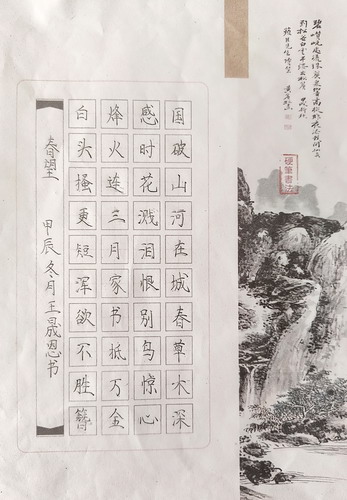 国破山河在城春草木深
感时花溅泪恨别鸟惊心
烽火连三月家书抵万金
白头搔更短浑欲不胜簪
春望
甲辰冬月王晟恩书
硬笔书法